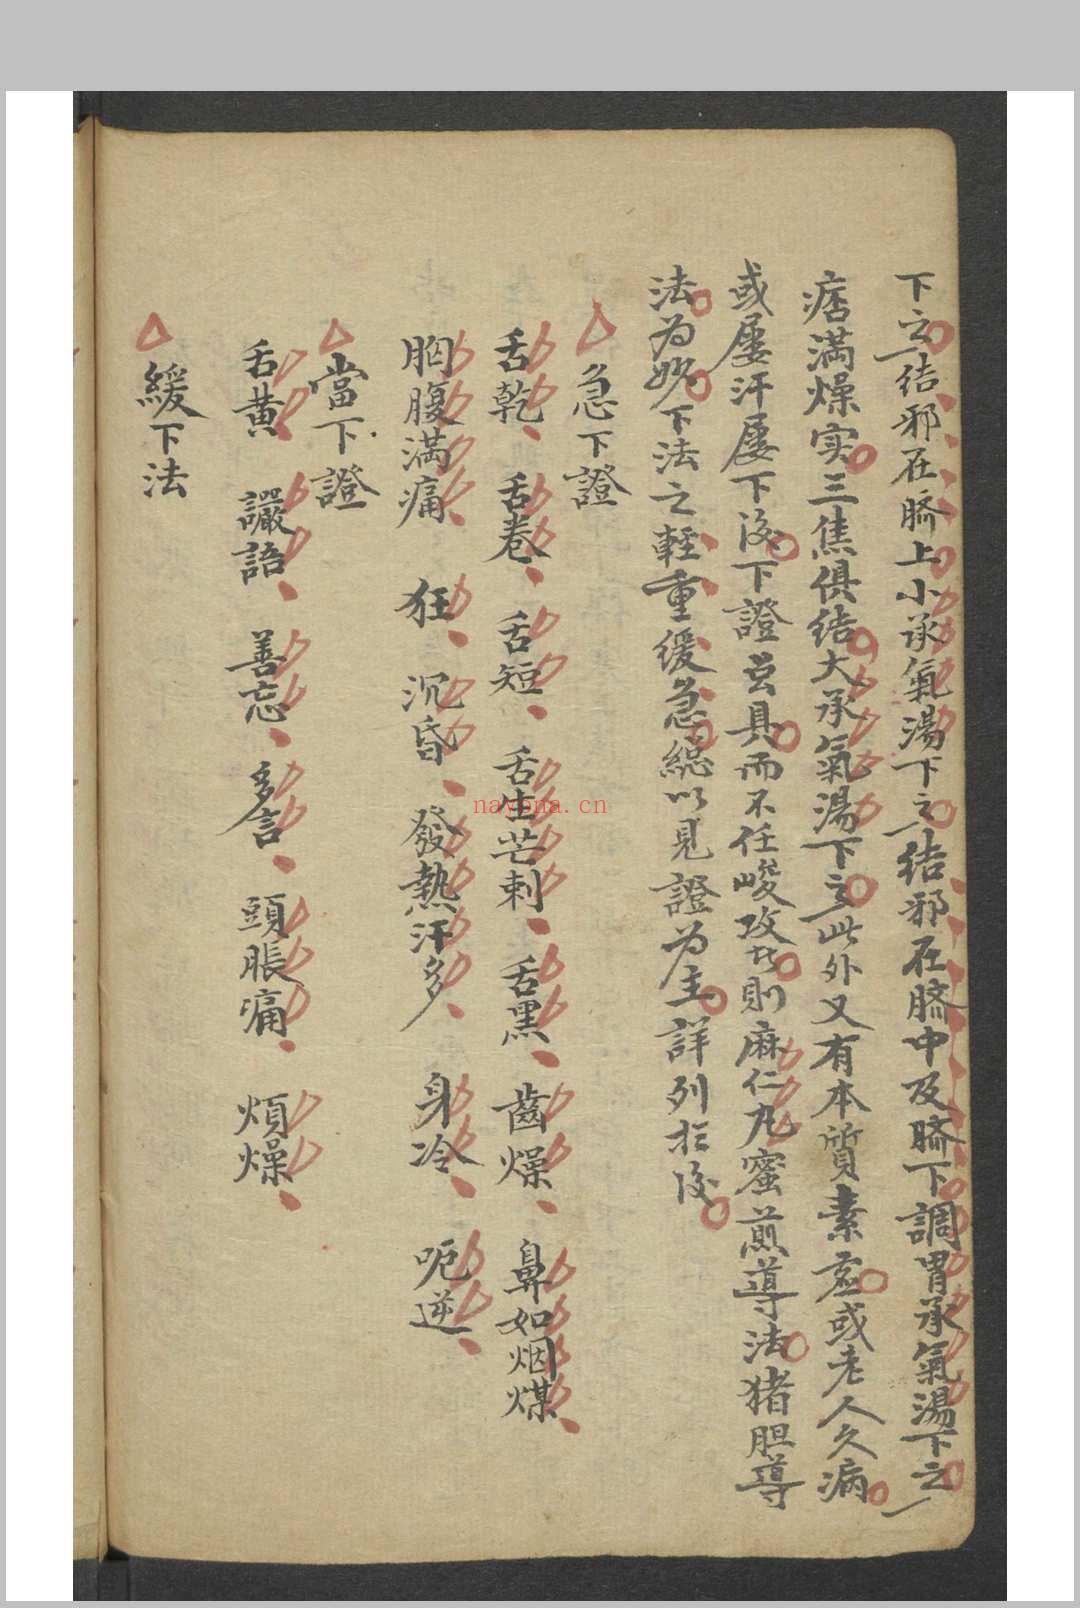 下之結邪在臍上小承氣湯下之結邪在臍中及臍下調胃承氣湯下之
痞滿燥实三焦俱结大承氣湯下之此外又有本質素虛或老人久病
或屡汗屡下後下證具而不任峻攻者則麻仁丸蜜煎導法猪胆導
法为妙下法之輕重緩急總以見證为主詳列於後
急下證
舌乾 舌卷 舌短 舌生芒刺 舌黑 齒燥 鼻如烟煤
胸腹滿痛 狂 沉昏 發熱汗多 身冷 呃逆
當下證
舌黃 讝語 善忘 多言 頭脹痛 煩燥
緩下法
nayona.cn